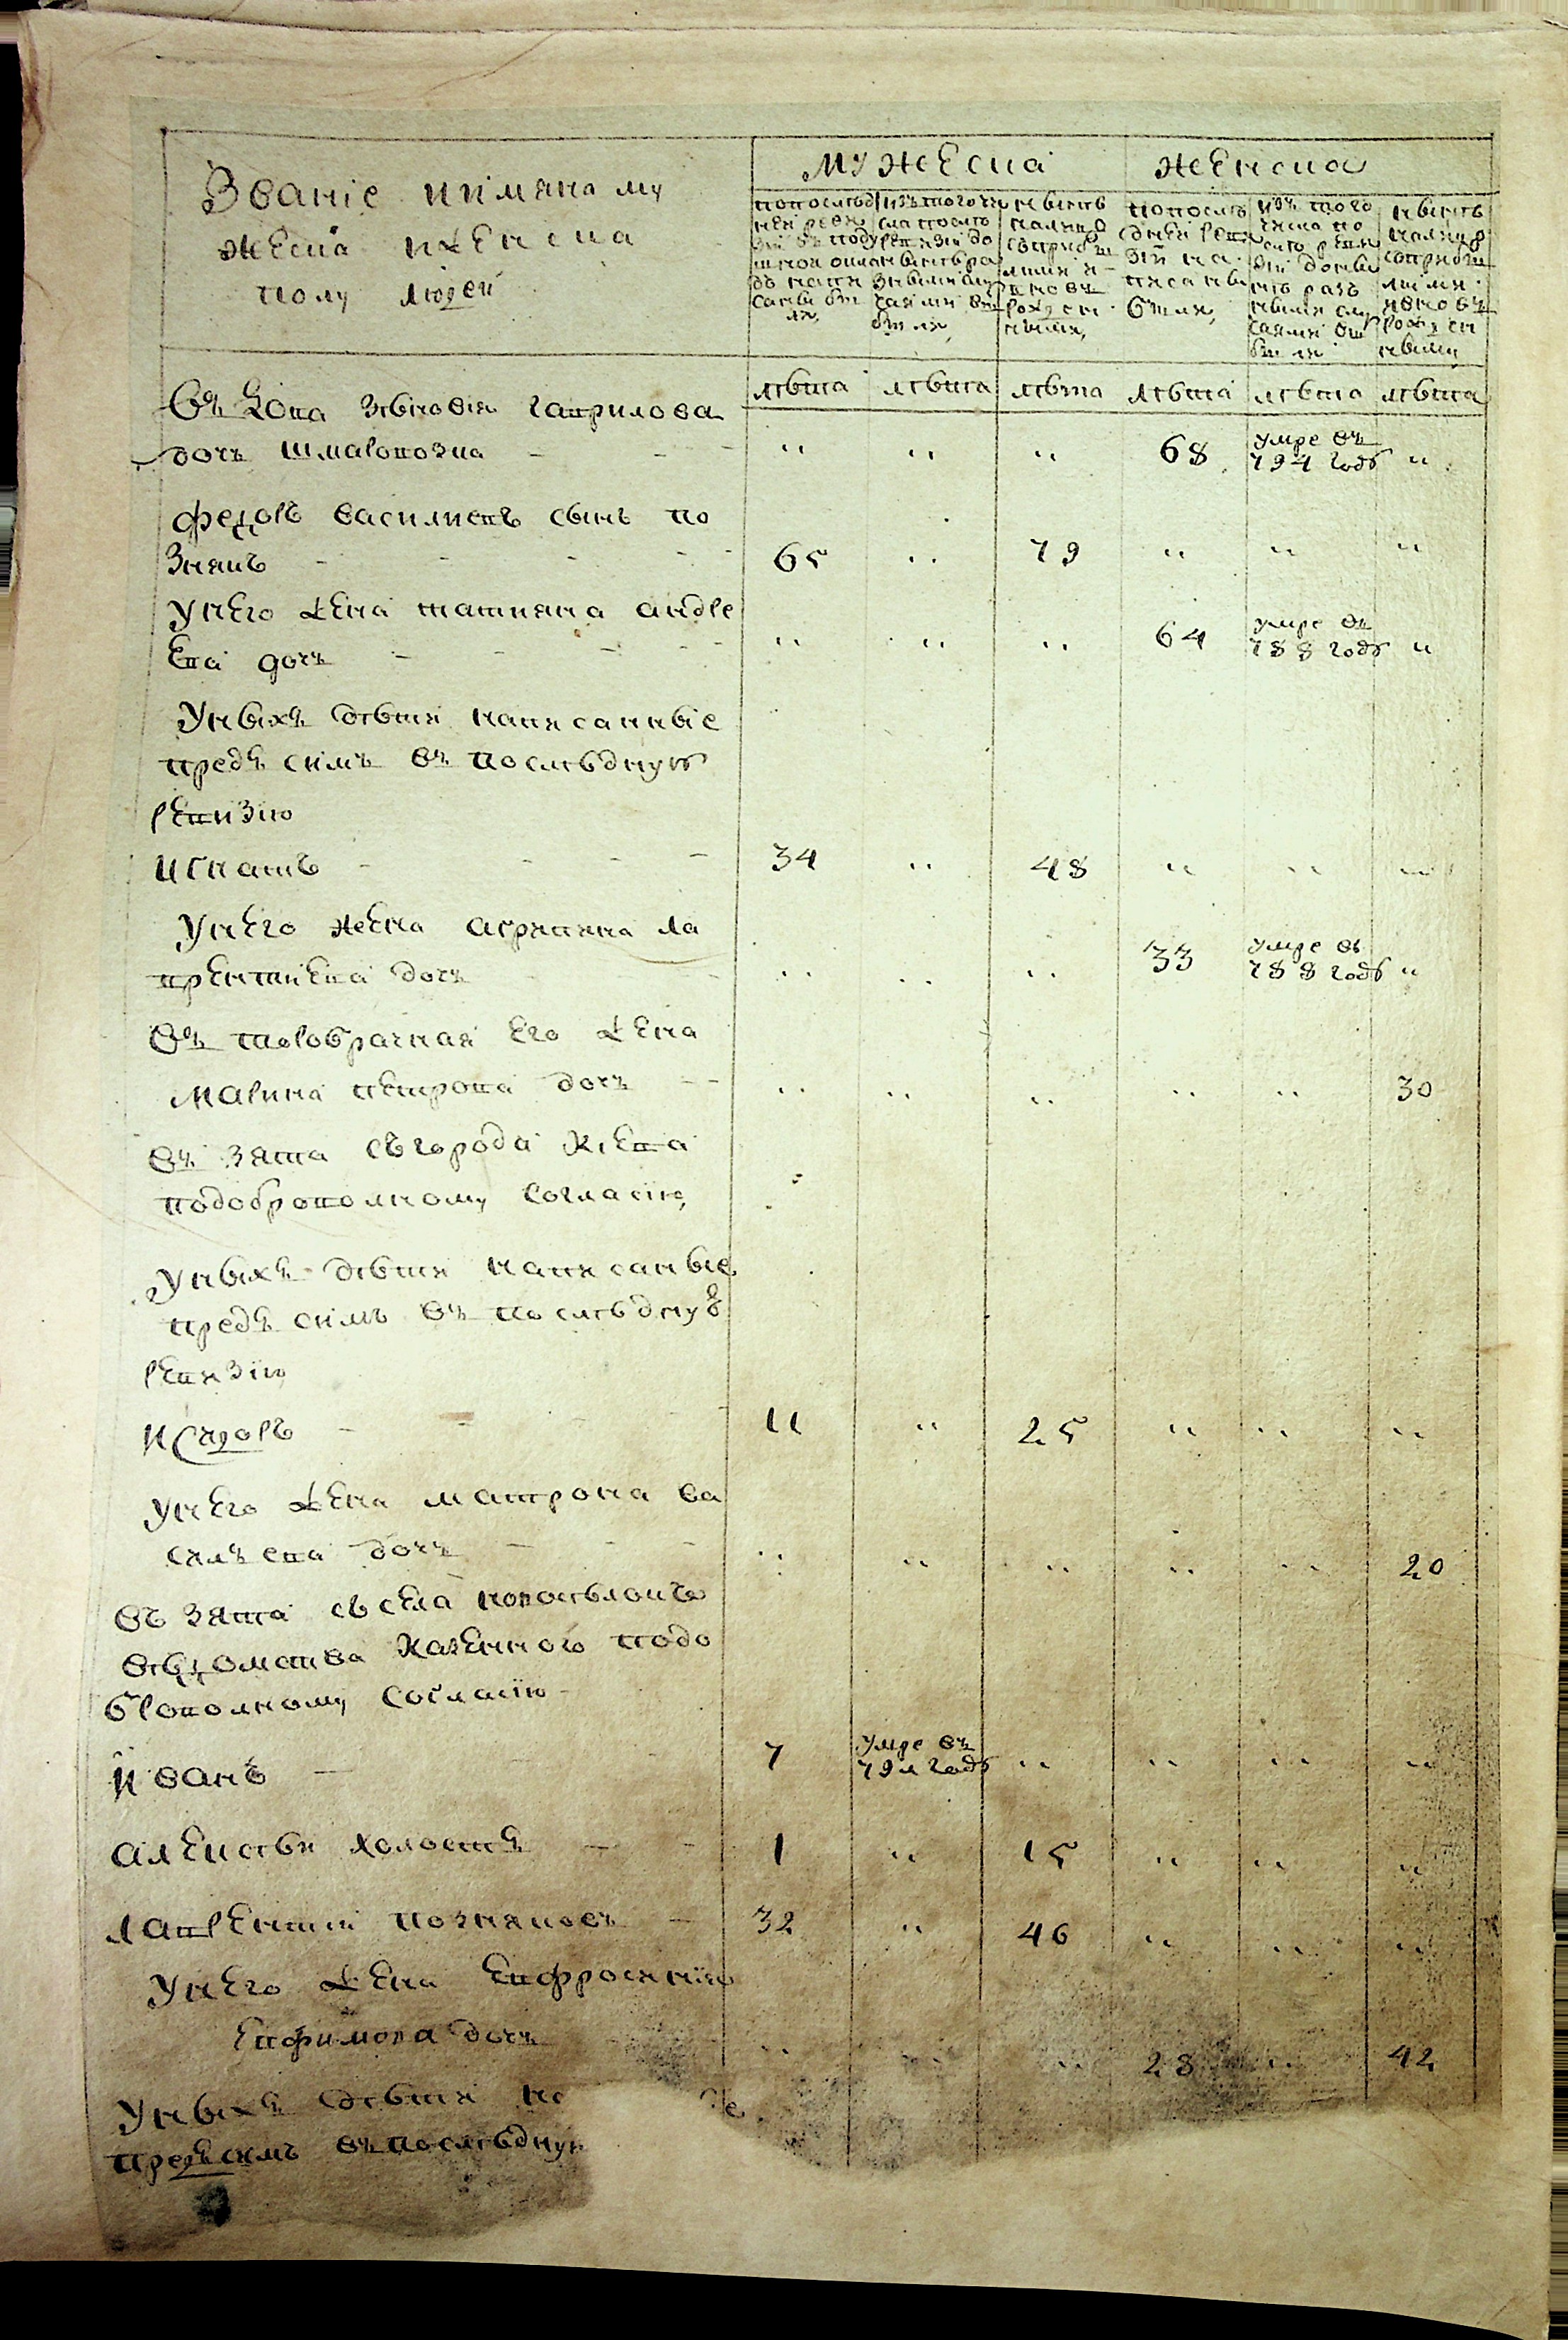 Званіе и имяна му
жеска и женска
полу людей
мужеска
женска
попослед
ней реви
зіи въ поду
шной окла
дъ напи
саны бы
ли,
изъ того чи
сла после
ревизіи до
ныне ра
зными слу
чаями вы
были,
ныне
налицо
сприбы
лыми и
вновь
рожден
ными,
попосле
дней реви
зіи на
писаны
были,
изъ того
числа по
сле реви
зіи доны
не раз
ными слу
чаями вы
были
ныне
налицо
сприбы
лыми
и вновь
рожден
ными
лѣта лѣта лѣта лѣта лѣта лѣта
Вдова Зѣновія гаврилова
дочь шмаровозка - - - " " " 68 умре въ 794 годѣ "
Федоръ василиевъ сынъ по
знякъ - - - - 65 " 79 " " "
Унего жена татияна андре
ева дочь - - - - " " " 64 умре въ 788 годѣ "
Унихъ дѣти написанніе
предъ симъ въ последную
ревизію
игнатъ - - - - 34 " 48 " " "
Унего жена агрипина ла
врентиева дочь - " " " 33 умре въ 788 годѣ "
Второбрачная его жена
Марина петрова дочь - - " " " " " 30
Взята съ города Киева
подоброволному согласію,
Унихъ дѣти написаніе
предъ симъ въ последную
ревизію
исидоръ - - - - 11 " 25 " " "
Унего жена матрона ва
силъева дочь - - - " " " " " 20
Взята съ села
вѣдомства казенного подо
броволному согласію -
Иванъ - - - 7 умре въ 791 годѣ " " " "
алексѣи холостъ - - 1 " 15 " " "
лаврентіи позняковъ - 32 " 46 " " "
Унего жена евфросинія
Евфимова дочь " " " 28 " 42
Унихъ дѣти
предъ симъ въ последную